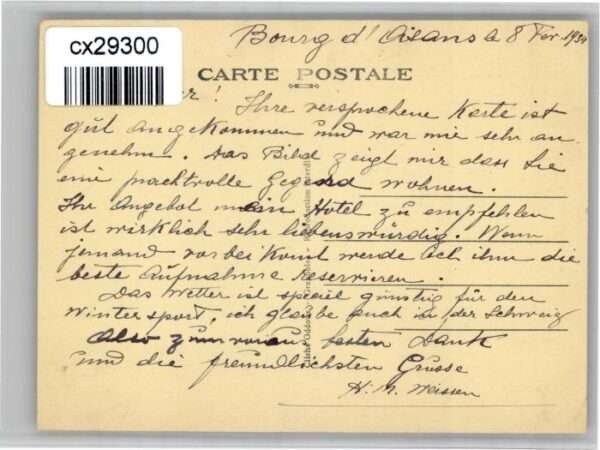 cx29300
Bourg d'Oisans le 8 Fev. 1934
CARTE POSTALE
Ihre versprochene Karte ist
gut angekommen und war mir sehr an
genehm. Das Bild zeigt mir dass Sie
eine prachtvolle Gegend wohnen.
Ihr Angebot mein Hotel zu empfehlen
ist wirklich sehr liebenswürdig. Wenn
jemand vorbei komt werde ich ihm die
beste Aufnahme reservieren.
Das Wetter ist speciel günstig für den
Wintersport, ich glaube auch in der Schweiz
Also zum voraus besten Dank
und die freundlichsten Grüsse
H. M.